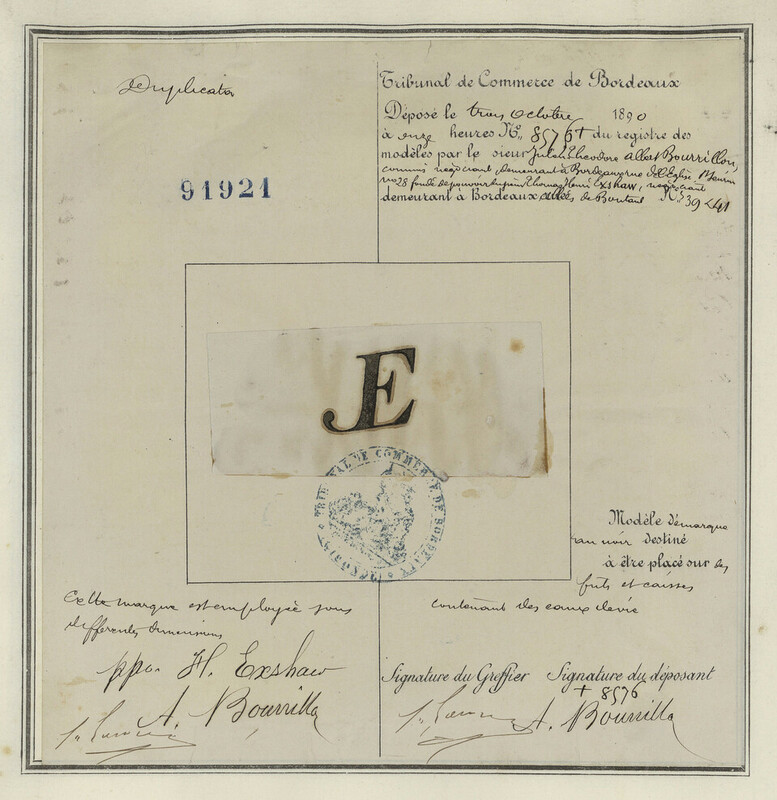 Duplicata
91921
Tribunal de Commerce de Bordeaux
Déposé le trois Octobre 1890
à onze heures N° 8576 + du registre des
modèles par le sieur Jules Théodore Bourrillon,
commis négociant demeurant à Bordeaux rue de l'Eglise
28 fondé de pouvoirs Thomas Henri Exshaw, négociant
demeurant à Bordeaux allées de Boutaut N° 39 <41
JE
TRIBUNAL DE COMMERCE DE BORDEAUX
Modèle de marque
au noir destiné
à être placé sur les
futs et caisses
contenant des eaux de vie
Cette marque est employée sous
differents dimensions
ppon H. Exshaw
A. Bourrillon
Signature du Greffier Signature du déposant
+ 8576
A. Bourrillon